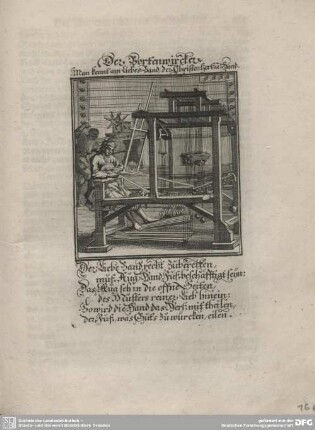 Der Bortenwürcker.
Man kennt am Liebes-Band der Christen Hertz u. Hand.
Der Lieb Band recht zubereiten,
muß Aug Hand Fuß beschäfftigt seyn:
Das Aug seh in die offne Seiten,
des Musters reiner Lieb hinein:
So wird die Hand das Werk mit
der Fuß, was Guts zu würcken, eilen.
Sächsische Landesbibliothek -
Staats- und Universitätsbibliothek Dresden
gefördert von der
Deutschen Forschungsgemeinschaft
DFG